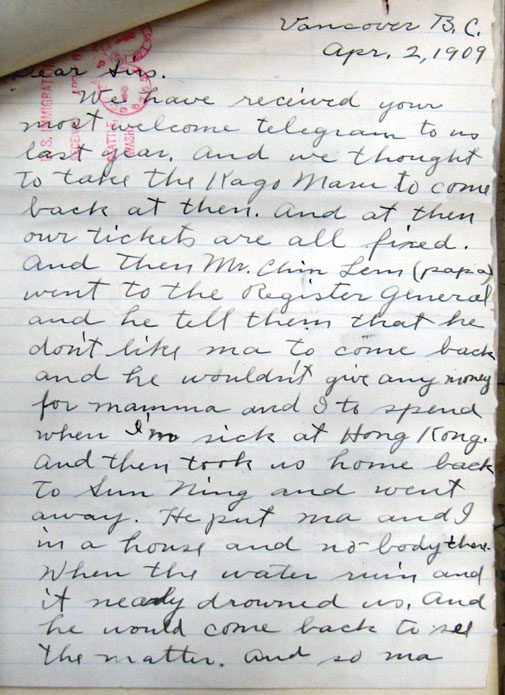 Vancover B.C.
Apr. 2, 1909
Dear Sirs.
We have received your
most welcome telegram to us
last year. And we thought
to take the Kago Maru to come
back at then. And at then
our tickets are all fixed.
And then Mr. Chin Lem (papa)
went to the Register General
and he tell them that he
don't like ma to come back
and he wouldn't give any money
for mamma and I to spend
when I'm sick at Hong Kong.
And then took us home back
to Sun Ning and went
away. He put ma and I
in a house and no-body there.
When the water ruin and
it nearly drowned us. And
he would come back to see
the matter. And so ma
U.S. IMMIGRATION
RECEIVED
SEATTLE,
WASH.